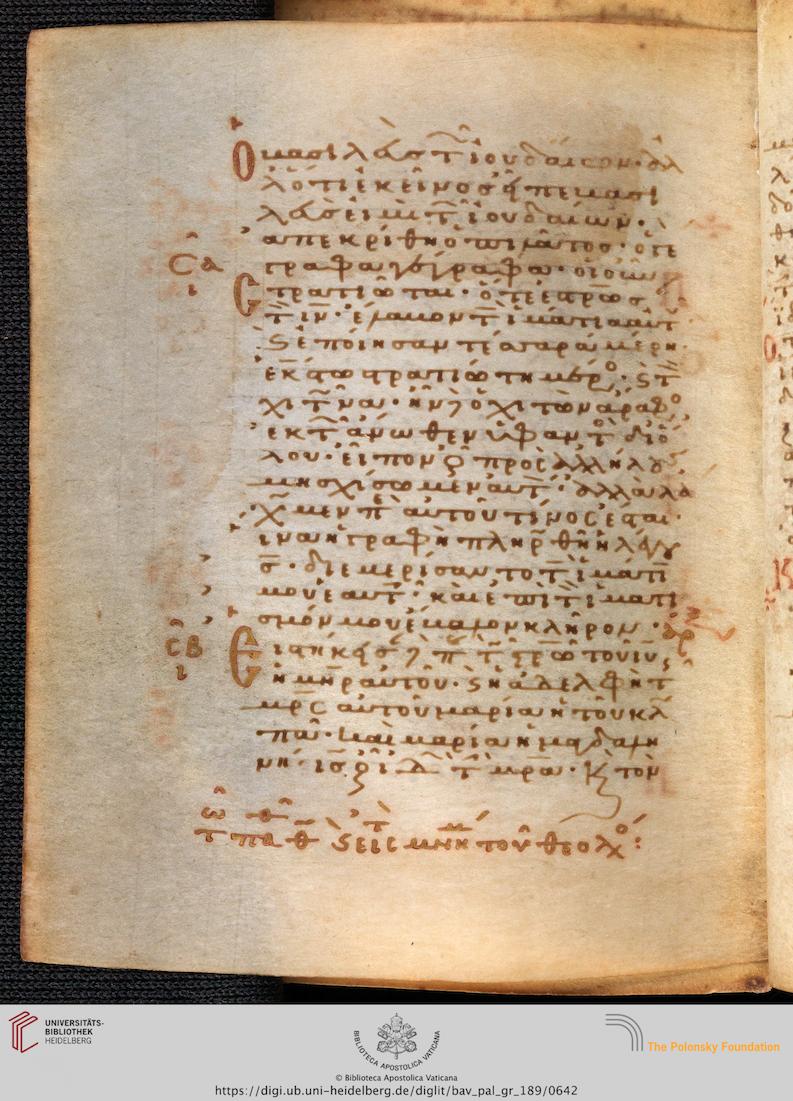 Ὁ βασιλεὺς τῶν ἰουδαίων· ἀλ
λ᾽ ὅτι ἐκεῖνος εἶπε βασι
λεύς εἰμι τῶν ἰουδαίων·
ἀπεκρίθη ὁ πιλᾶτος· ὃ γέ
γραφα γέγραφα· οἱ οὖν
στρατιῶται· ὅτε ἐσταύρωσ
τ ιν· ἔλαβον τ ἱμάτια αὐτ
καὶ ἐποίησαν τέσσαρα μέρη·
ἑκάστω στρατιώτη μέρο· καὶ τ
χιτῶνα· ἦν δὲ ὁ χιτὼν ἄραφο
ἐκ τ ἄνωθεν ὑφαντὸ δι᾽ ὅ
λου· εἶπον οὖν πρὸς ἀλλήλου
μὴ σχίσωμεν αὐτ· ἀλλὰ λά
χωμεν π αὐτοῦ τίνος ἔσται·
ἵνα ἡ γραφὴ πληρωθῆ ἡ λέγου
σ· διεμερίσαντο τ ἱμάτι
μου ἑαυτ· καὶ ἐπὶ τ ἱματι
σμόν μου ἔβαλον κλῆρον·
Εἱστήκεισ δὲ π τ στρω τοῦ ιυ,
ἡ μηρ αὐτοῦ· καὶ ἡ ἀδελφὴ τ
μρς αὐτοῦ μαρία ἡ τοῦ κλ
πᾶ· καὶ μαρία ἡ μαγδαλη
νή· ις οὖν ἰδ τ μρα· καὶ τὸν
τ παθ καὶ εἰς μν τοῦ θεολο:
UNIVERSITÄTS-
BIBLIOTHEK
HEIDELBERG
BIBLIOTECA APOSTOLICA VATICANA
The Polonsky Foundation
© Biblioteca Apostolica Vaticana
https://digi.ub.uni-heidelberg.de/diglit/bav_pal_gr_189/0642